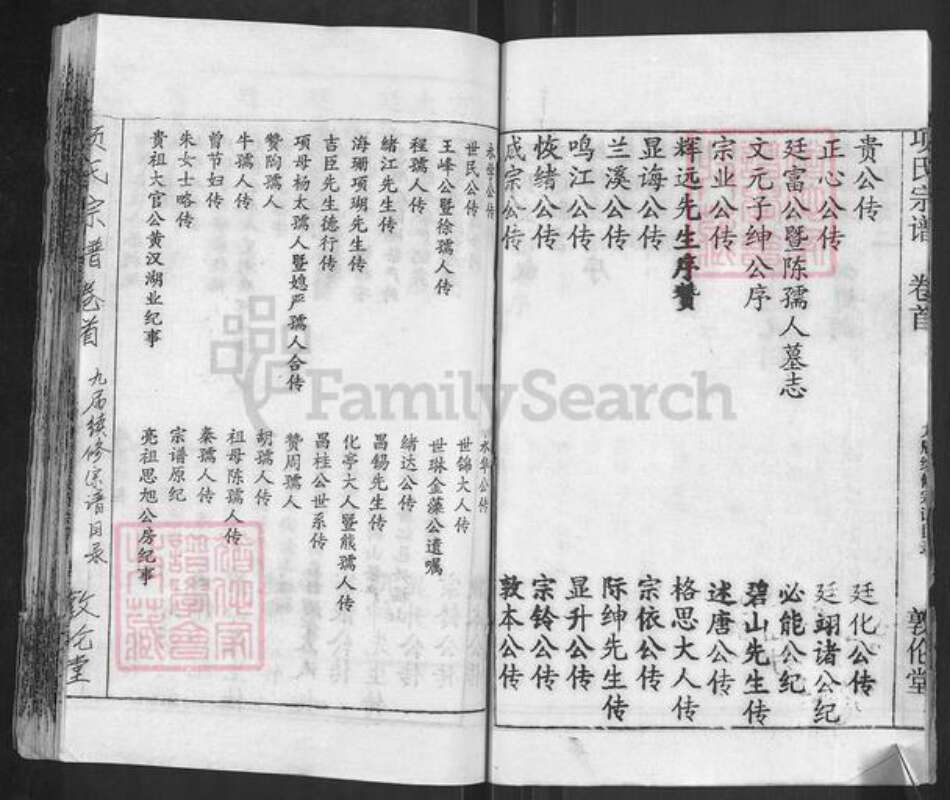 项氏宗谱 卷首
敦伦堂
贵公传
廷化公传
正心公传
廷翊诸公纪
廷富公暨陈孺人墓志
必能公纪
文元子绅公序
碧山先生传
宗业公传
述唐公传
辉远先生序赞
格思大人传
显诲公传
宗依公传
兰溪公传
际绅先生传
鸣江公传
显升公传
恢绪公传
宗铃公传
成宗公传
敦本公传
永学公传
永华公传
世民公传
世锦大人传
玉峰公暨徐孺人传
世琳金藻公遗嘱
程孺人传
绪达公传
绪江先生传
昌锡先生传
海珊项瑚先生传
化亭大人暨熊孺人合传
吉臣先生德行传
昌柱公世系传
项母杨太孺人暨媳严孺人合传
赞周孺人
赞陶孺人
胡孺人传
牛孺人传
祖母陈孺人传
曾节妇传
秦孺人传
朱女士略传
宗谱原纪
贵祖大官公黄汉湖业纪事
亮祖思旭公房纪事
项氏宗谱 卷首 九届续修宗谱目录 敦伦堂
FamilySearch